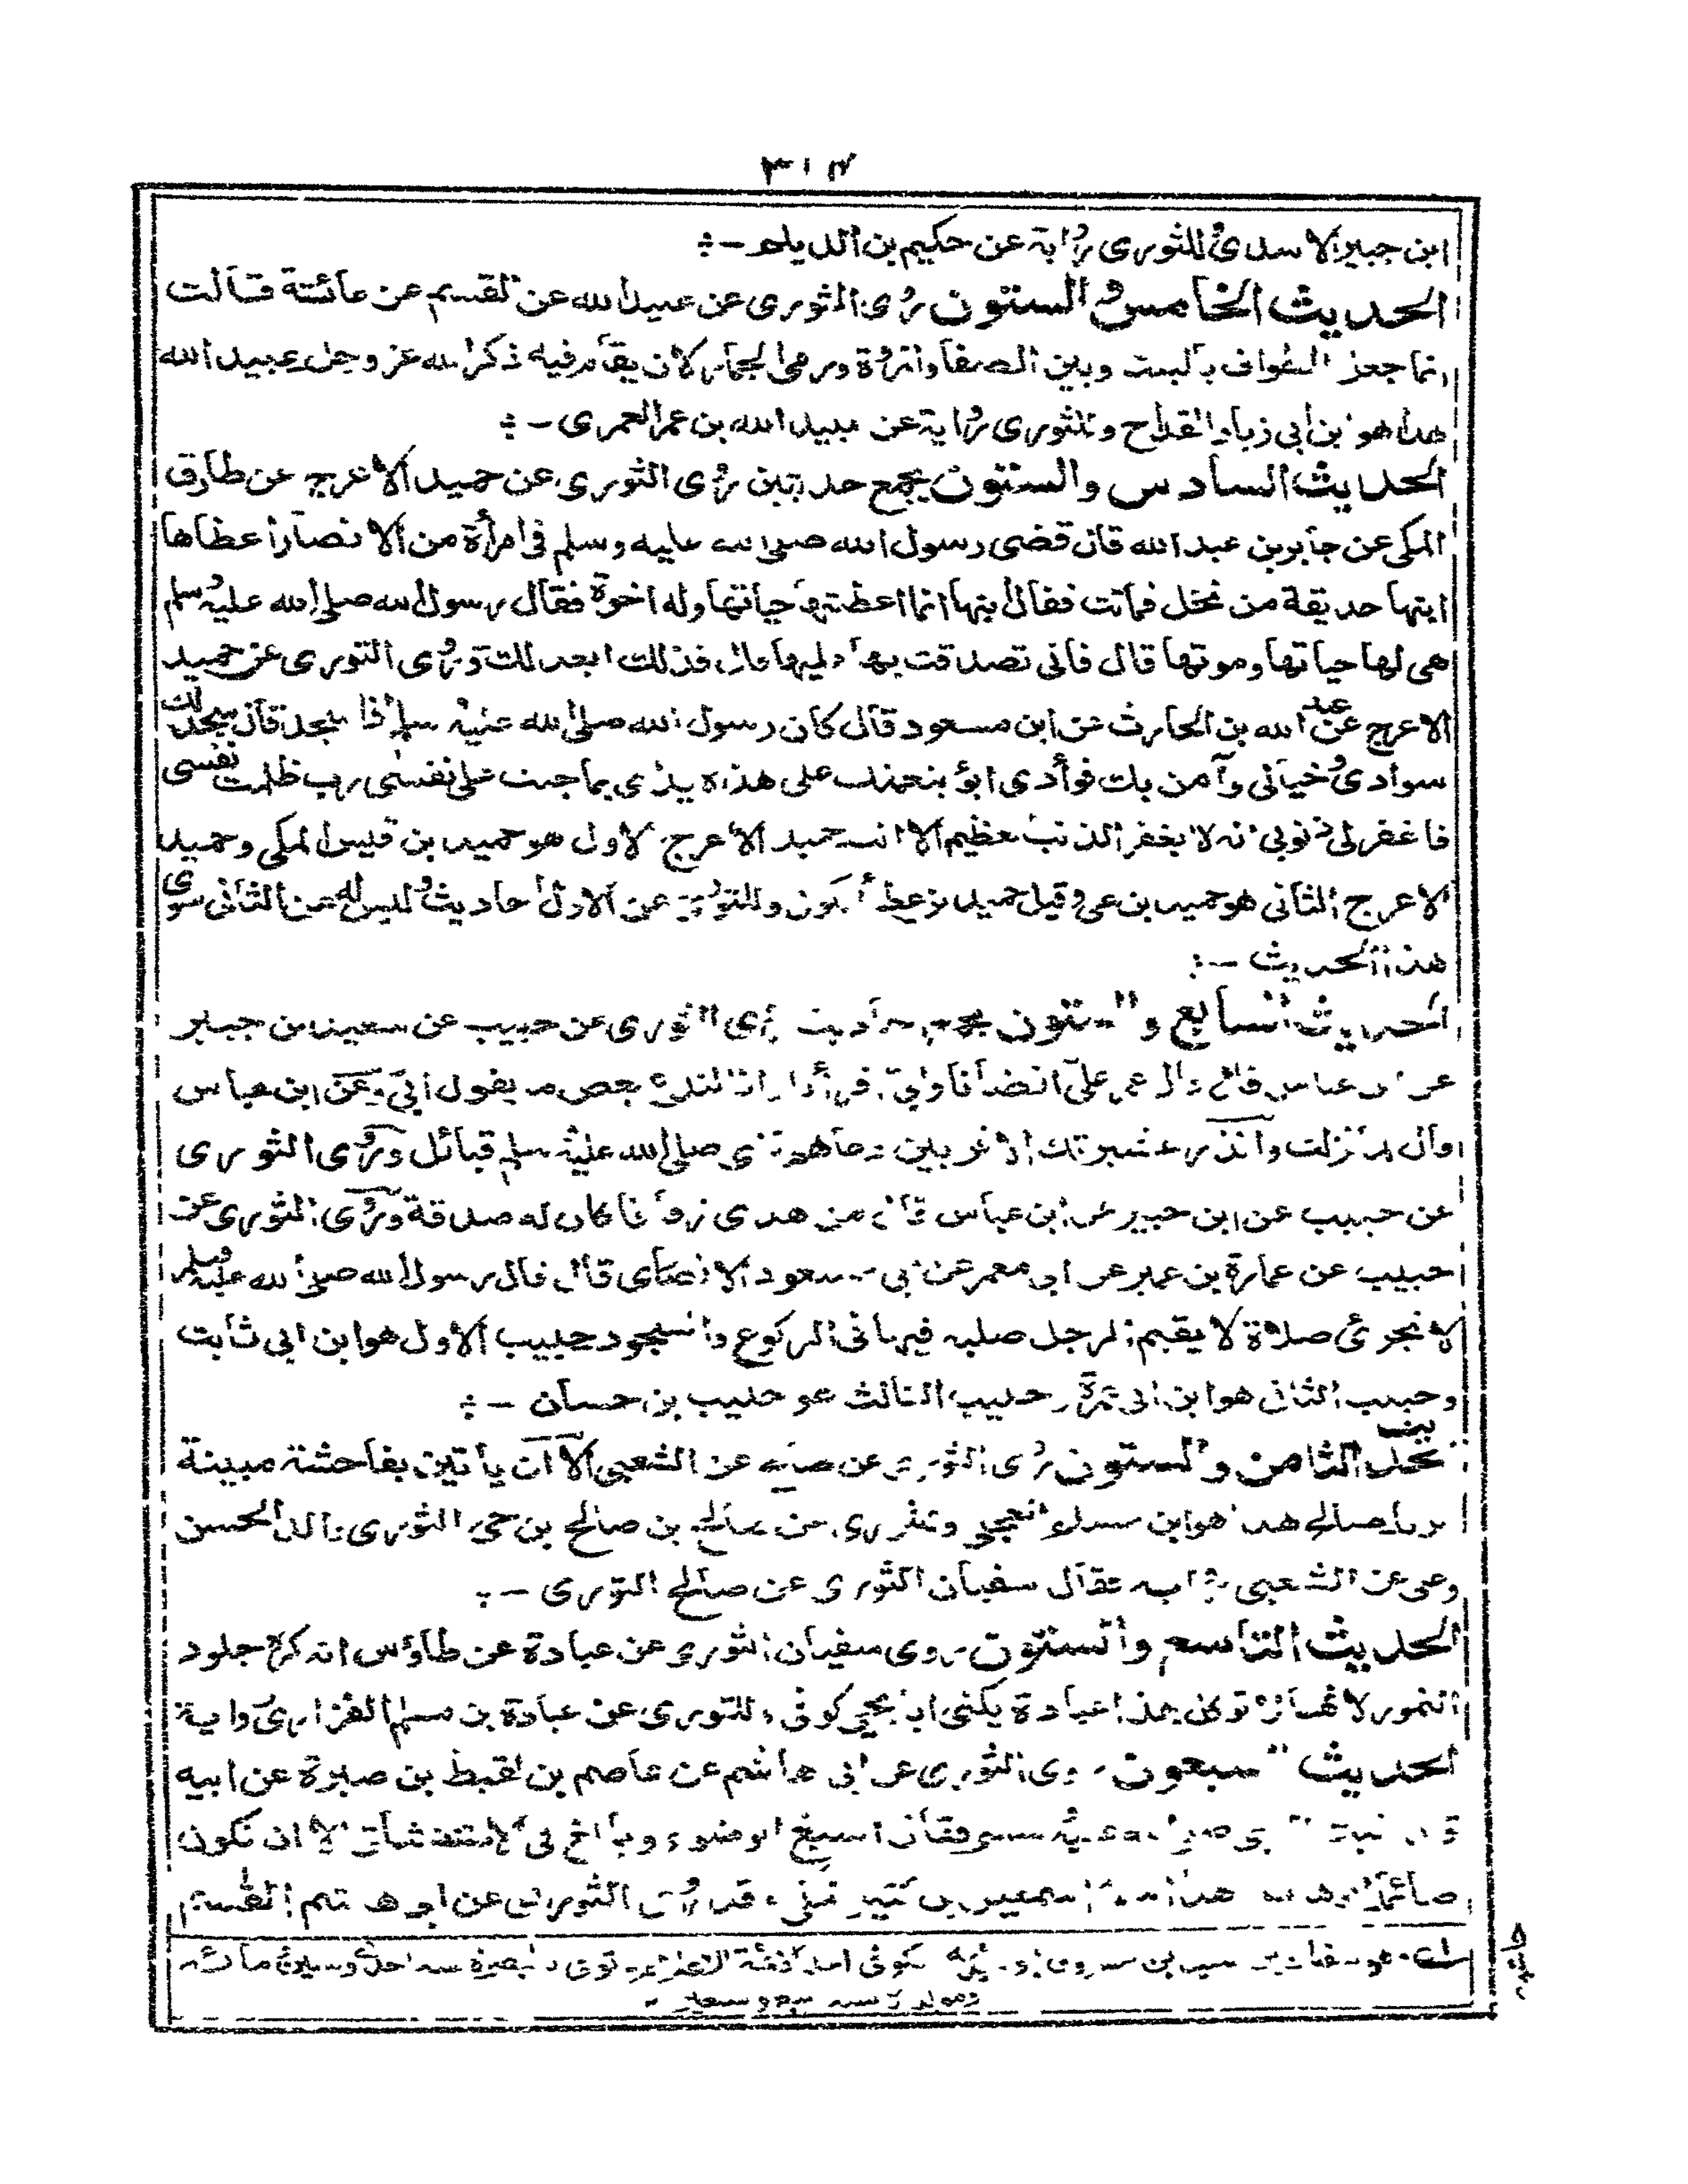 ابن جبير الاسدى وللثورى رواية عن حكيم بن الديلم -:
الحديث الخامس والستون روى الثورى عن عبيد الله عن القسم عن عائشة قالت
انما جعل الطواف بالبيت وبين الصفا والمروة ورمى الجمار كان يقام فيه ذكر الله عز وجل عبيد الله
هذا هو ابن ابى زياد القداح وللثورى رواية عن عبيد الله بن عمر العمرى -:
الحديث السادس والستون يجمع حديثين روى الثورى عن حميد الاعرج عن طارق
المكى عن جابر بن عبد الله قال قضى رسول الله صلى الله عليه وسلم فى امرأة من الانصار اعطاها
ابنها حديقة من نخل فماتت فقال ابنها انما اعطيتها حياتها وله اخوة فقال رسول الله صلى الله عليه وسلم
هى لها حياتها وموتها قال فانى تصدقت بها عليها قال فذلك ابعد لك وروى الثورى عن حميد
الاعرج عن عبد الله بن الحارث عن ابن مسعود قال كان رسول الله صلى الله عليه وسلم اذا سجد قال سجد لك
سوادى وخيالى وآمن بك فوأدى ابوء بنعمتك على هذه يدى بما جنت على نفسى رب ظلمت نفسى
فاغفر لى ذنوبى انه لا يغفر الذنب العظيم الا انت حميد الاعرج الاول هو حميد بن قيس المكى وحميد
الاعرج الثانى هو حميد بن على وقيل حميد بن عطا كوفى وللثورى عن الاول احاديث وليس له عن الثانى سوى
هذا الحديث -:
الحديث السابع والستون يجمع احاديث روى الثورى عن حبيب عن سعيد بن جبير
عن ابن عباس قال قال عمر على اقضانا وابى اقرأنا وانا لندع بعض ما يقول ابى وعن ابن عباس
قال لما نزلت وانذر عشيرتك الاقربين دعاهم النبى صلى الله عليه وسلم قبائل وروى الثورى
عن حبيب عن ابن جبير عن ابن عباس قال من هدى زقاقا كان له صدقة وروى الثورى عن
حبيب عن عمارة بن عمير عن ابى معمر عن ابى مسعود الانصارى قال قال رسول الله صلى الله عليه وسلم
لا تجزئ صلاة لا يقيم الرجل صلبه فيها فى الركوع والسجود حبيب الاول هو ابن ابى ثابت
وحبيب الثانى هو ابن ابى عمرة وحبيب الثالث هو حبيب بن حسان -:
الحديث الثامن والستون روى الثورى عن صالح عن الشعبى الا ان ياتين بفاحشة مبينة
صالح هذا هو ابن مسلم العجلى وللثورى عن صالح بن صالح بن حى الثورى والد الحسن
وعلى عن الشعبى رواية فقال سفيان الثورى عن صالح الثورى -:
الحديث التاسع والستون روى سفيان الثورى عن عبادة عن طاؤس انه كره جلود
النمور لانها لا توكل هذا عبادة يكنى ابا يحيى كوفى وللثورى عن عبادة بن مسلم الفزارى رواية
الحديث السبعون روى الثورى عن ابى هاشم عن عاصم بن لقيط بن صبرة عن ابيه
قال اتيت النبى صلى الله عليه وسلم فقال اسبغ الوضوء وبالغ فى الاستنشاق الا ان تكون
صائما ابو هاشم هذا اسمه اسمعيل بن كثير مكى وقد روى الثورى عن ابى هاشم القسم
مائة